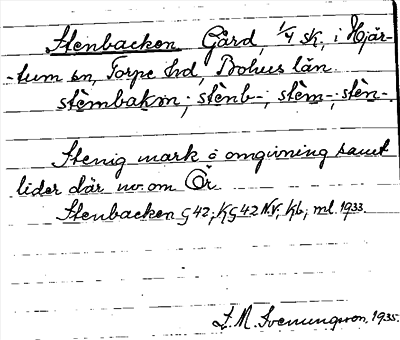 Stenbacken Gård, 1/4 sk, i Hjär-
-tum sn, Torpe hd, Bohus län.
stèmbakɐn; stènb-; stèm-; stèn-.
Stenig mark ò omgivning samt
lider där no om Ör.
Stenbacken G 42; KG 42 NV; Kb; ml. 1933.
L. M. Svenungsson, 1935.